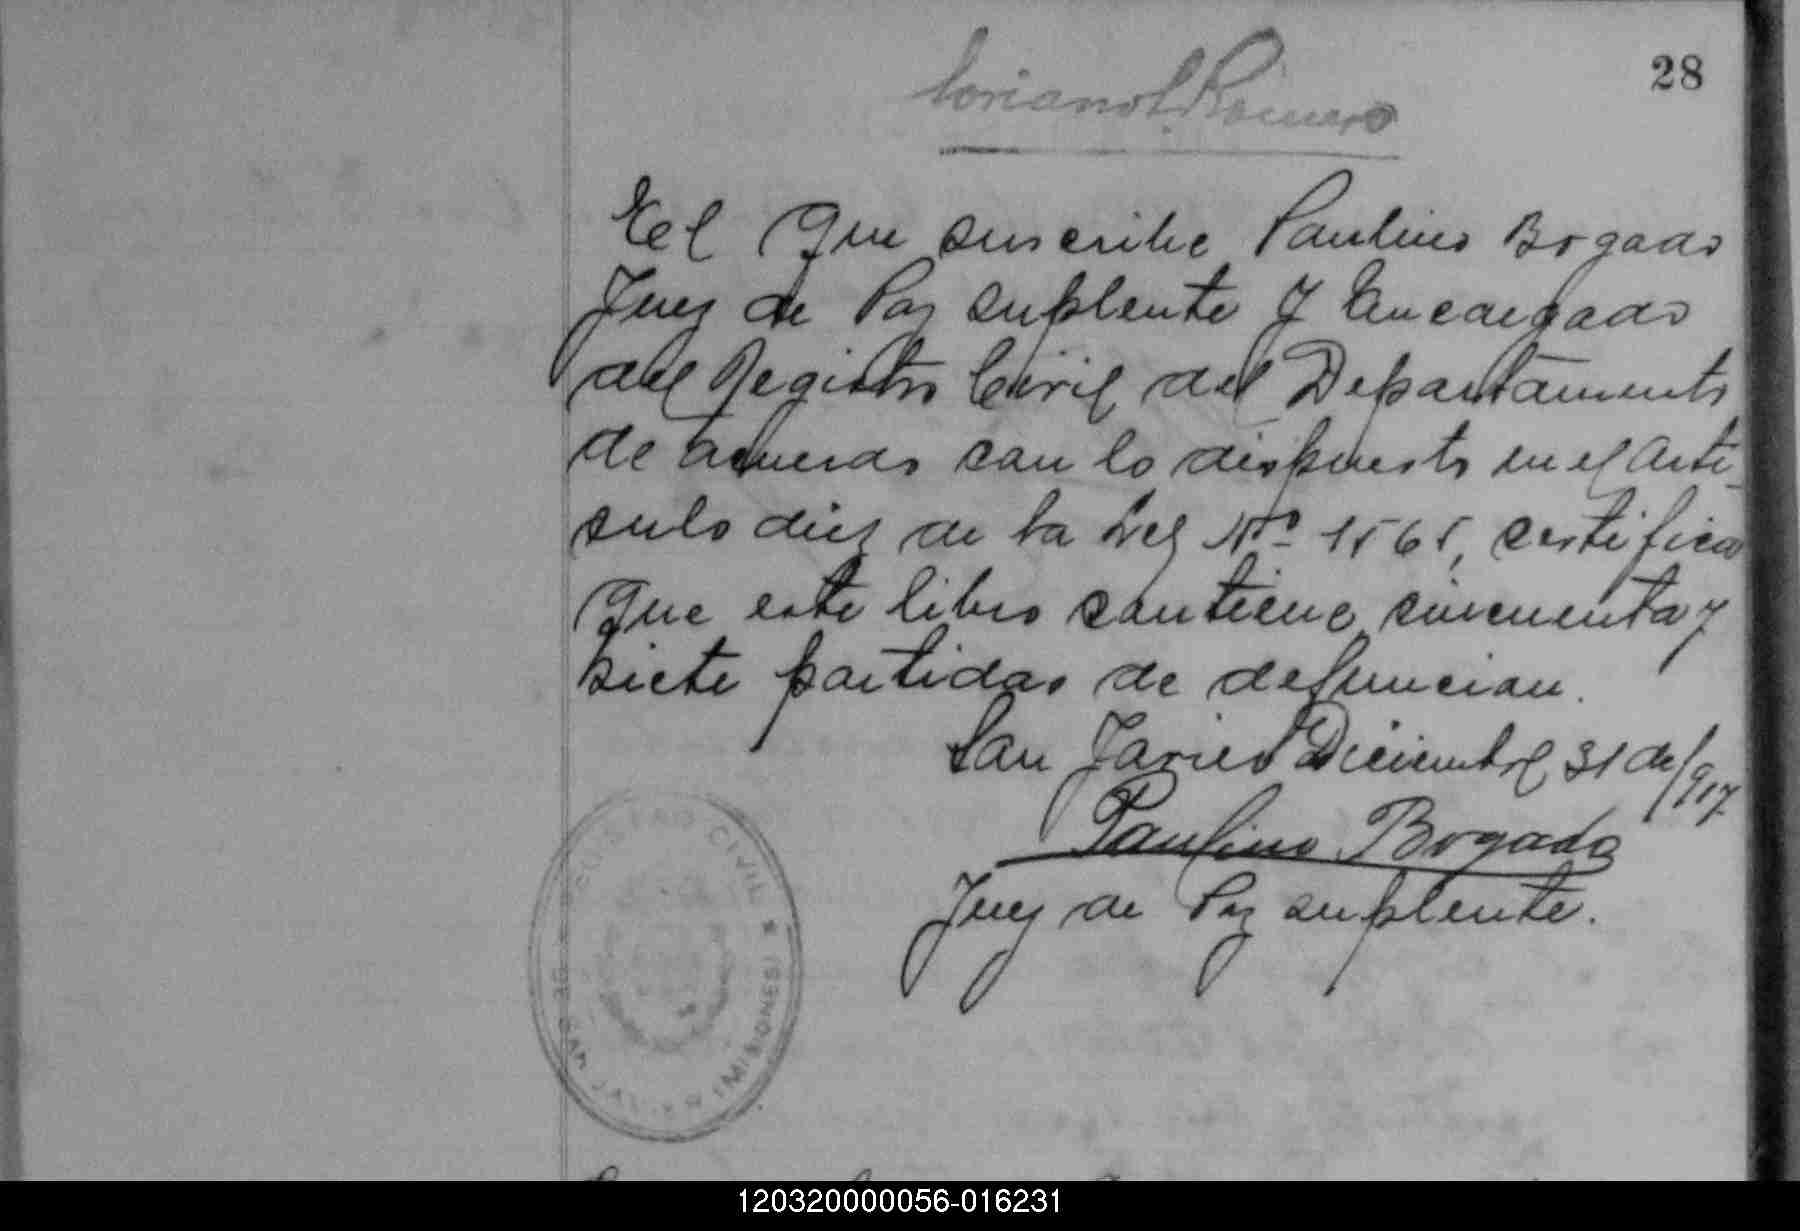 28
Soriano L. Romero
El que suscribe Paulino Bogado
Juez de Paz suplente y Encargado
del Registro Civil del Departamento
de acuerdo con lo dispuesto en el arti-
culo diez de la Ley Nº 1565, certifica
que este libro contiene cincuenta y
siete partidas de defuncion.
San Javier Diciembre 31 de/917.
Paulino Bogado
Juez de Paz suplente.
REGISTRO CIVIL
DE SAN JAVIER (MISIONES)
120320000056-016231